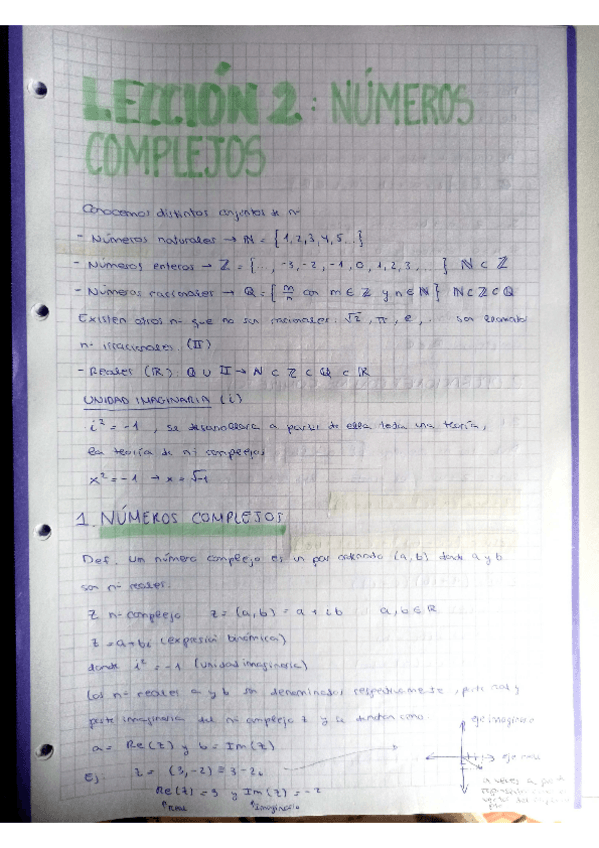 LECCIÓN 2: NÚMEROS
COMPLEJOS
Conocemos distintos conjuntos de nº
- Números naturales → ℕ = {1,2,3,4,5...}
- Números enteros → ℤ = {..., -3,-2,-1,0,1,2,3,...} ℕ ⊂ ℤ
- Números racionales → ℚ = {m/n con m ∈ ℤ y n ∈ ℕ} ℕ⊂ℤ⊂ℚ
Existen otros nº que no son racionales: √2, π, e, ... son llamados
nº irracionales (𝕀)
- Reales (ℝ): ℚ ∪ 𝕀 → ℕ ⊂ ℤ ⊂ ℚ ⊂ ℝ
UNIDAD IMAGINARIA (i)
i² = -1, se desarrollará a partir de ella toda una teoría,
la teoría de nº complejos
x² = -1 → x = √-1
1. NÚMEROS COMPLEJOS
Def. Un número complejo es un par ordenado (a,b) donde a y b
son nº reales.
z nº complejo z = (a,b) = a + ib a,b ∈ ℝ
z = a+bi (expresión binómica)
donde i² = -1 (unidad imaginaria)
Los nº reales a y b son denominados respectivamente, parte real y
parte imaginaria del nº complejo z y se denotan como:
a = Re(z) y b = Im(z)
Ej. z = (3,-2) = 3-2i
Re(z) = 3 y Im(z) = -2
Real Imaginario
eje imaginario
eje real